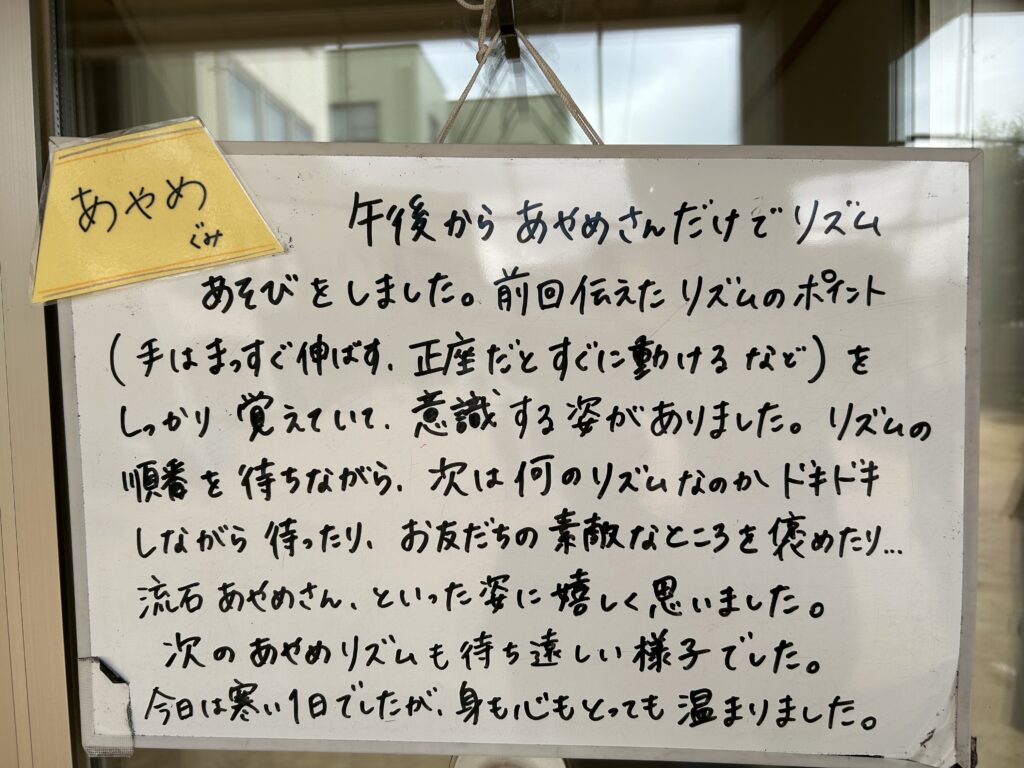 あやめ
ぐみ
午後からあやめさんだけでリズム
あそびをしました。前回伝えたリズムのポイント
(手はまっすぐ伸ばす、正座だとすぐに動けるなど)を
しっかり覚えていて、意識する姿がありました。リズムの
順番を待ちながら、次は何のリズムなのかドキドキ
しながら待ったり、お友だちの素敵なところを褒めたり…
流石あやめさん、といった姿に嬉しく思いました。
次のあやめリズムも待ち遠しい様子でした。
今日は寒い1日でしたが、身も心もとっても温まりました。